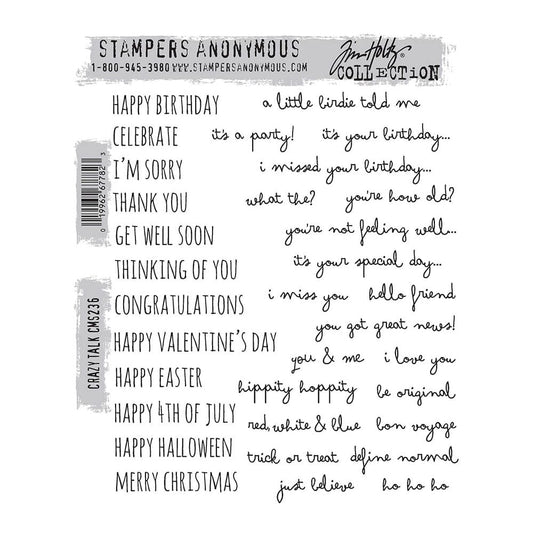 STAMPERS ANONYMOUS
1-800-945-3980 WWW.STAMPERSANONYMOUS.COM
Tim Holtz
COLLECTION
HAPPY BIRTHDAY
CELEBRATE
I'M SORRY
THANK YOU
GET WELL SOON
THINKING OF YOU
CONGRATULATIONS
HAPPY VALENTINE'S DAY
HAPPY EASTER
HAPPY 4TH OF JULY
HAPPY HALLOWEEN
MERRY CHRISTMAS
a little birdie told me
it's a party! it's your birthday...
i missed your birthday...
what the? you're how old?
you're not feeling well...
it's your special day...
i miss you hello friend
you got great news!
you & me i love you
hippity hoppity be original
red, white & blue bon voyage
trick or treat define normal
just believe ho ho ho
0 19962 67782 3
CRAZY TALK CMS236